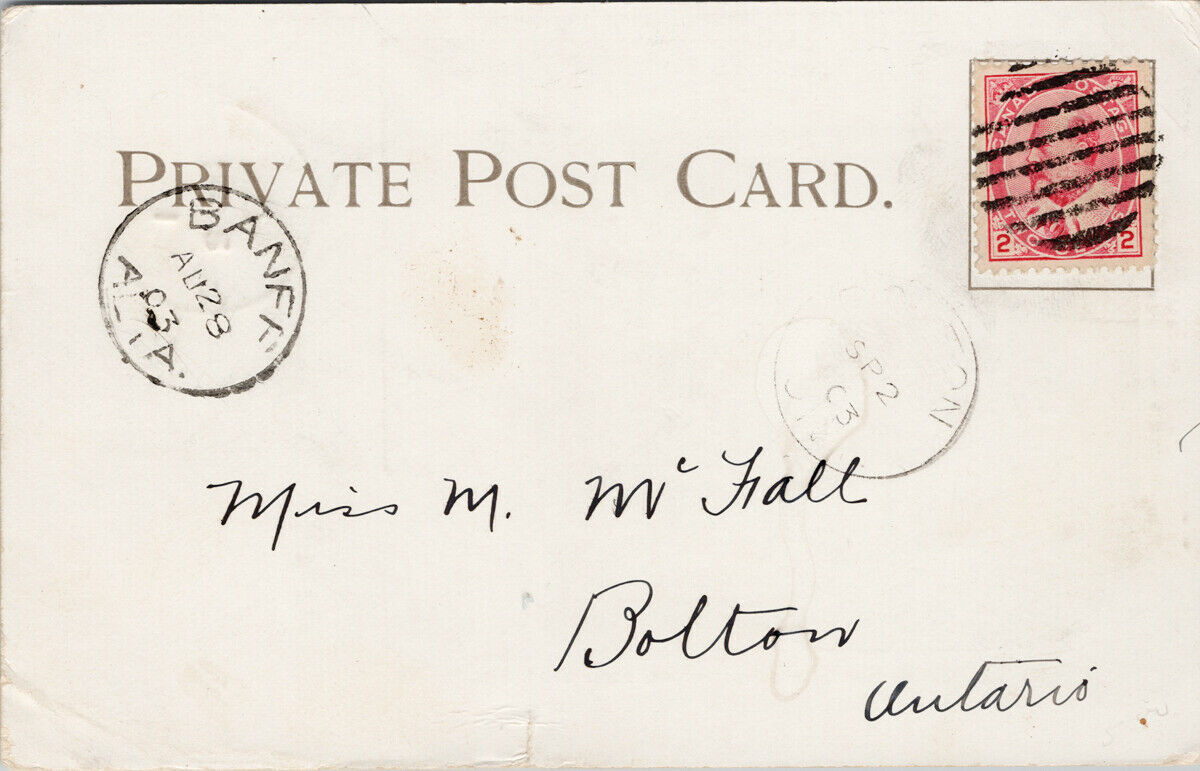 PRIVATE POST CARD.
CANADA POSTAGE
2 2
BANFF
AU 28
03
ALTA.
SP 2
03
Miss M. McFall
Bolton
Ontario